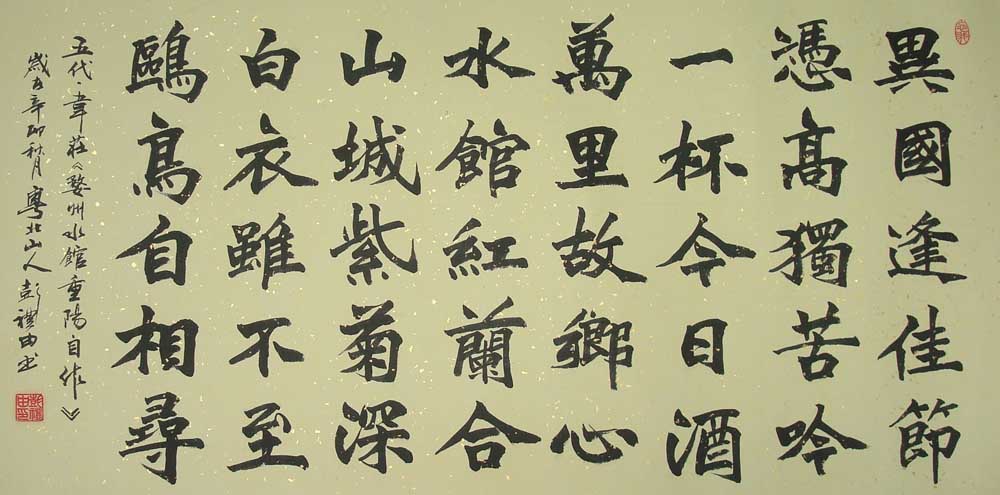 異國逢佳節
憑高獨苦吟
一杯今日酒
萬里故鄉心
水館紅蘭合
山城紫菊深
白衣雖不至
鷗鳥自相尋
五代韋莊《婺州水館重陽自作》
歲在辛卯秋月粵北山人彭禮由书